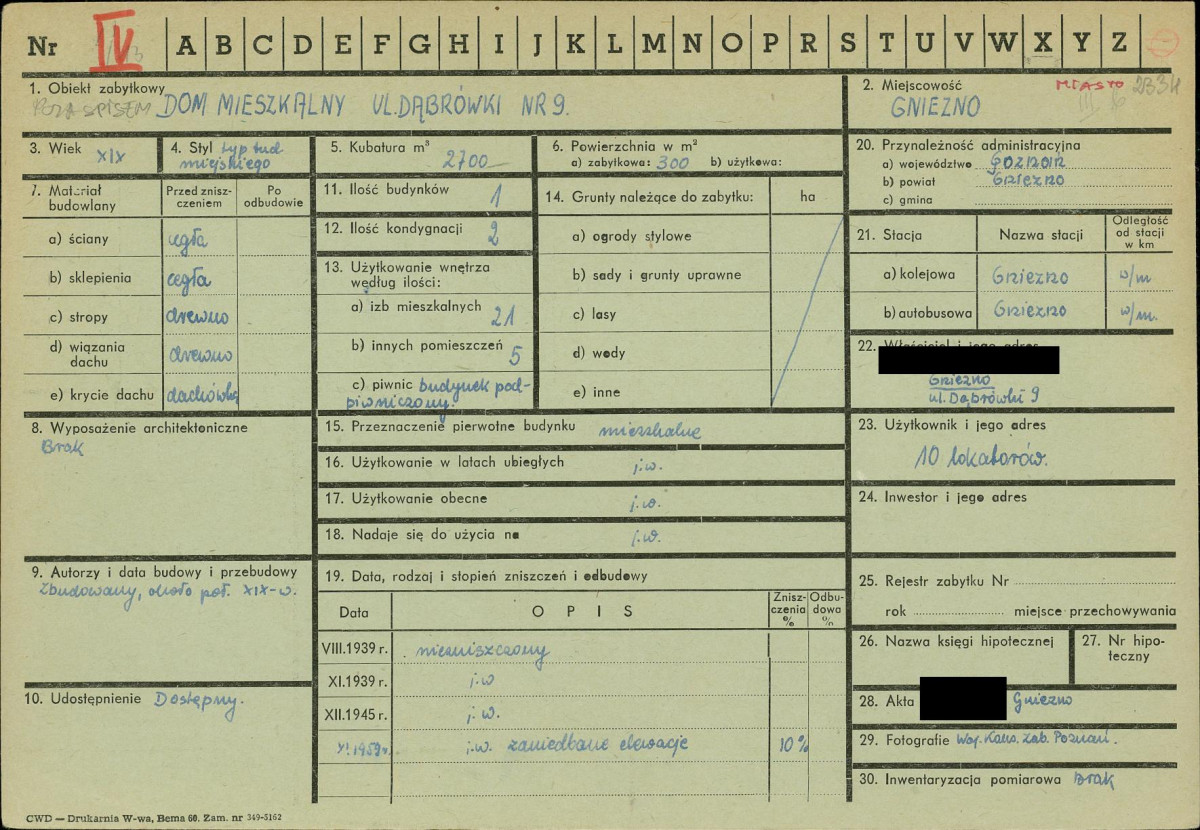 Nr IV A B C D E F G H I J K L M N O P R S T U V W X Y Z
1. Obiekt zabytkowy
POZA SPISEM DOM MIESZKALNY UL. DĄBRÓWKI NR 9.
2. Miejscowość MIASTO 2334
GNIEZNO
3. Wiek XIX
4. Styl typ bud
miejskiego
5. Kubatura m³
2700
6. Powierzchnia w m²
a) zabytkowa: 300 b) użytkowa:
20. Przynależność administracyjna
a) województwo POZNAŃ
b) powiat GNIEZNO
c) gmina
7. Materiał budowlany
Przed zniszczeniem
Po odbudowie
a) ściany cegła
b) sklepienia cegła
c) stropy drewno
d) wiązania dachu drewno
e) krycie dachu dachówka
11. Ilość budynków 1
12. Ilość kondygnacji 2
13. Użytkowanie wnętrza
według ilości:
a) izb mieszkalnych 21
b) innych pomieszczeń 5
c) piwnic budynek pod-
piwniczony.
14. Grunty należące do zabytku: ha
a) ogrody stylowe
b) sady i grunty uprawne
c) lasy
d) wody
e) inne
21. Stacja Nazwa stacji Odległość od stacji w km
a) kolejowa GNIEZNO w/m
b) autobusowa GNIEZNO w/m.
22. Właściciel i jego adres
GNIEZNO
ul. Dąbrówki 9
8. Wyposażenie architektoniczne
Brak
15. Przeznaczenie pierwotne budynku mieszkalne
16. Użytkowanie w latach ubiegłych j.w.
17. Użytkowanie obecne j.w.
18. Nadaje się do użycia na j.w.
23. Użytkownik i jego adres
10 lokatorów.
24. Inwestor i jego adres
9. Autorzy i data budowy i przebudowy
Zbudowany, około poł. XIX-w.
19. Data, rodzaj i stopień zniszczeń i odbudowy
Data OPIS Zniszczenia % Odbudowa %
VIII.1939 r. niezniszczony
XI.1939 r. j.w
XII.1945 r. j.w.
XI.1959 r. j.w. zaniedbane elewacje 10%
25. Rejestr zabytku Nr
rok miejsce przechowywania
26. Nazwa księgi hipotecznej
27. Nr hipo-
teczny
10. Udostępnienie Dostępny.
28. Akta Gniezno
29. Fotografie Woj. Kons. Zab. Poznań.
30. Inwentaryzacja pomiarowa Brak
CWD — Drukarnia W-wa, Bema 60. Zam. nr 349-5162